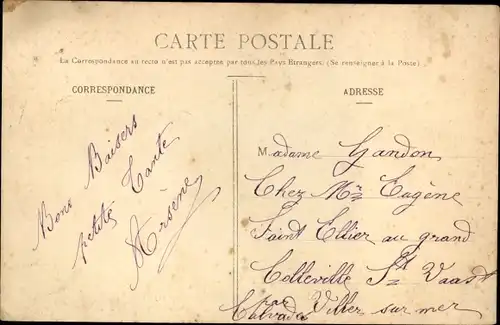 CARTE POSTALE
La Correspondance au recto n'est pas acceptée par tous les Pays Etrangers. (Se renseigner à la Poste)
CORRESPONDANCE
Bons Baisers
petite Tante
Arsène
ADRESSE
Madame Gandon
Chez Mr Eugène
Saint Ellier au grand
Colleville St Vaast
par Villers sur mer
Calvados